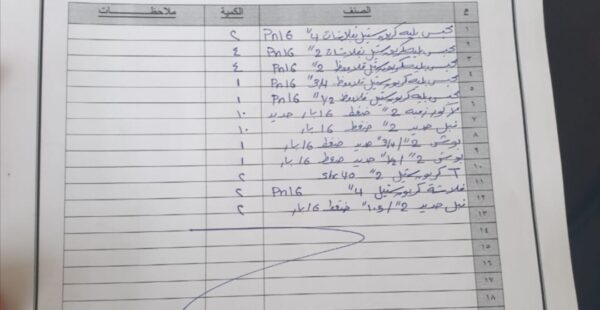 م الصنف الكمية ملاحظات
١ محبس بليه كربون ستيل بفلانشات 4" Pn16 ٢
٢ محبس بليه كربون ستيل بفلانشات 2" Pn16 ٤
٣ محبس بليه كربون ستيل قلاووظ 2" Pn16 ٤
٤ محبس بليه كربون ستيل قلاووظ 3/4" Pn16 ١
٥ محبس بليه كربون ستيل قلاووظ 1/2" Pn16 ١
٦ 2" ضغط 16 بار حديد ١٠
٧ نبل حديد 2" ضغط 16 بار ١٠
٨ بوش 2"/3/4" حديد ضغط 16 بار ١
٩ بوش 2"/1/2" حديد ضغط 16 بار ١
١٠ T كربون ستيل 2" sch 40 ٢
١١ فلانشة كربون ستيل 4" Pn16 ٢
١٢ نبل حديد 2"/1.5" ضغط 16 بار ٢
١٣
١٤
١٥
١٦
١٧
١٨